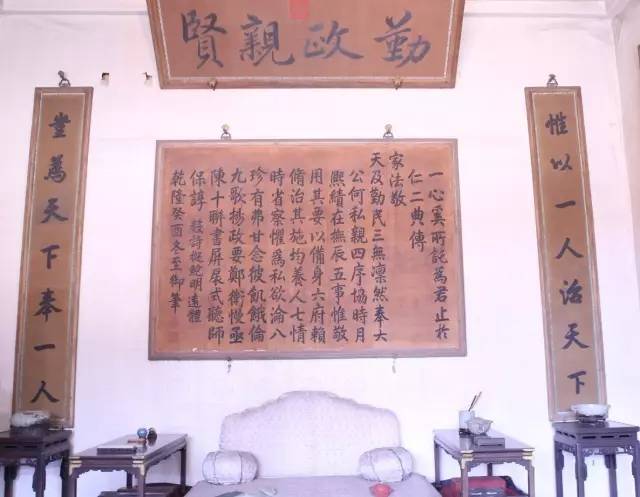 勤政親賢
惟以一人治天下
一心奚所託為君止於
仁二典傳
家法敬
天及勤民三無凜然奉大
公何私親四序協時月
熙績在撫辰五事惟敬
用其要以脩身六府賴
脩治其施均養人七情
時省察懼為私欲淪八
珍有弗甘念彼飢餓倫
九歌政要鄭衛慢亟
陳十聯書屏扆式聽師
保諄 數詩從鮑明遠體
乾隆癸酉冬至御筆
豈為天下奉一人